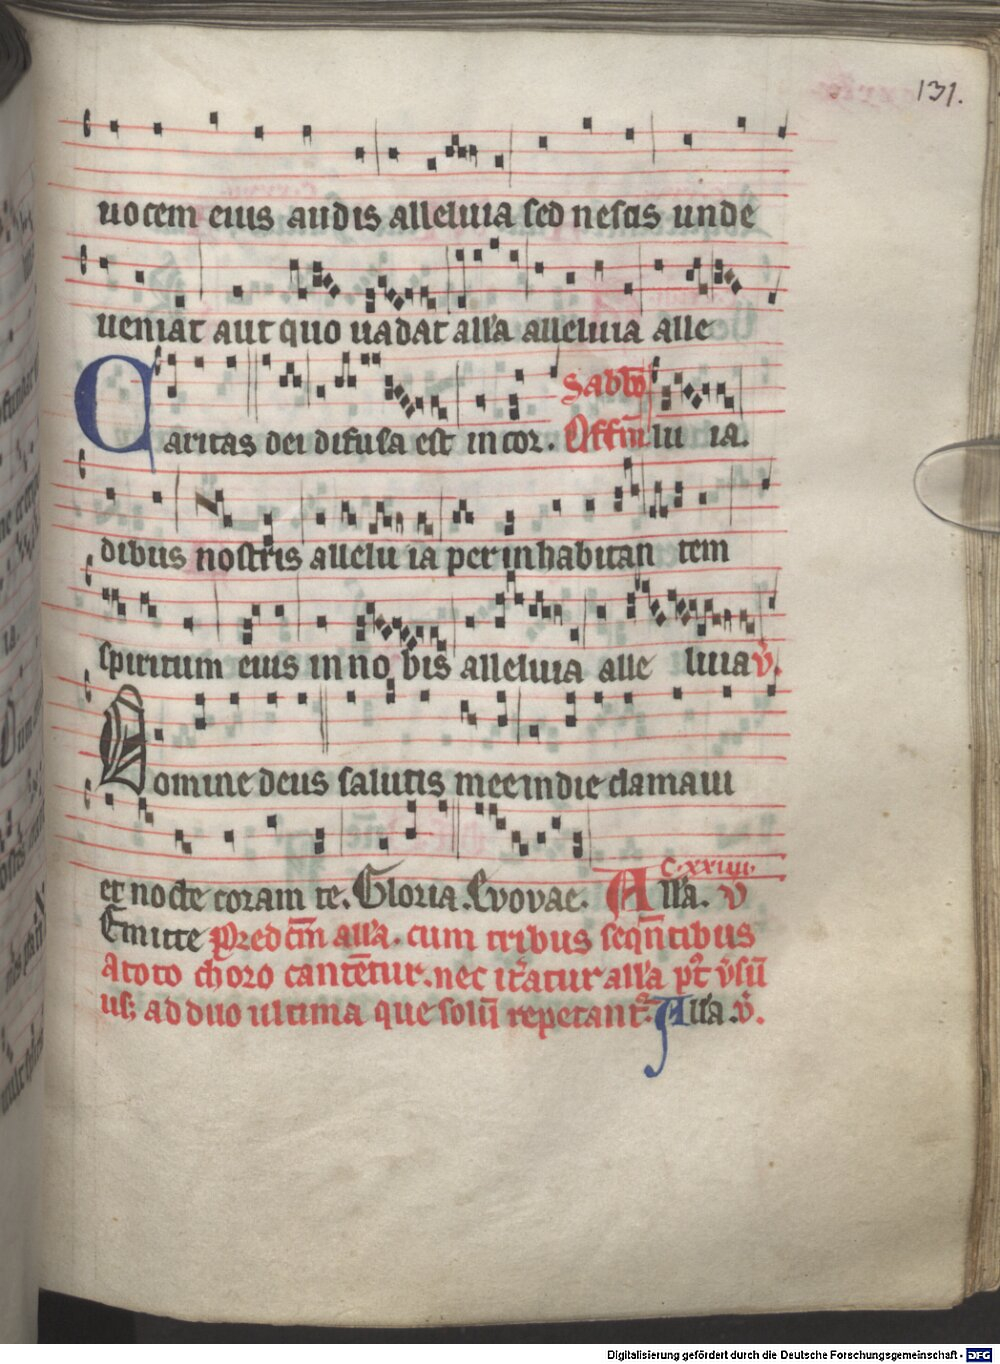 131.
uocem eius audis alleluia sed nescis unde
ueniat aut quo uadat all'a alleluia alle
Caritas dei difusa est in cor. Offim lu ia.
Sabbo
dibus nostris allelu ia per inhabitan tem
spiritum eius in no bis alleluia alle luia v.
Domine deus salutis mee in die clamaui
et nocte coram te. Gloria. Evovae. All'a. v
C.xxiiii.
Emitte Predcm all'a. cum tribus seqntibus
a toto choro cantentur. nec itatur all'a pt vsu
us; ad duo ultima que solu repetant. All'a. v.
Digitalisierung gefördert durch die Deutsche Forschungsgemeinschaft - DFG